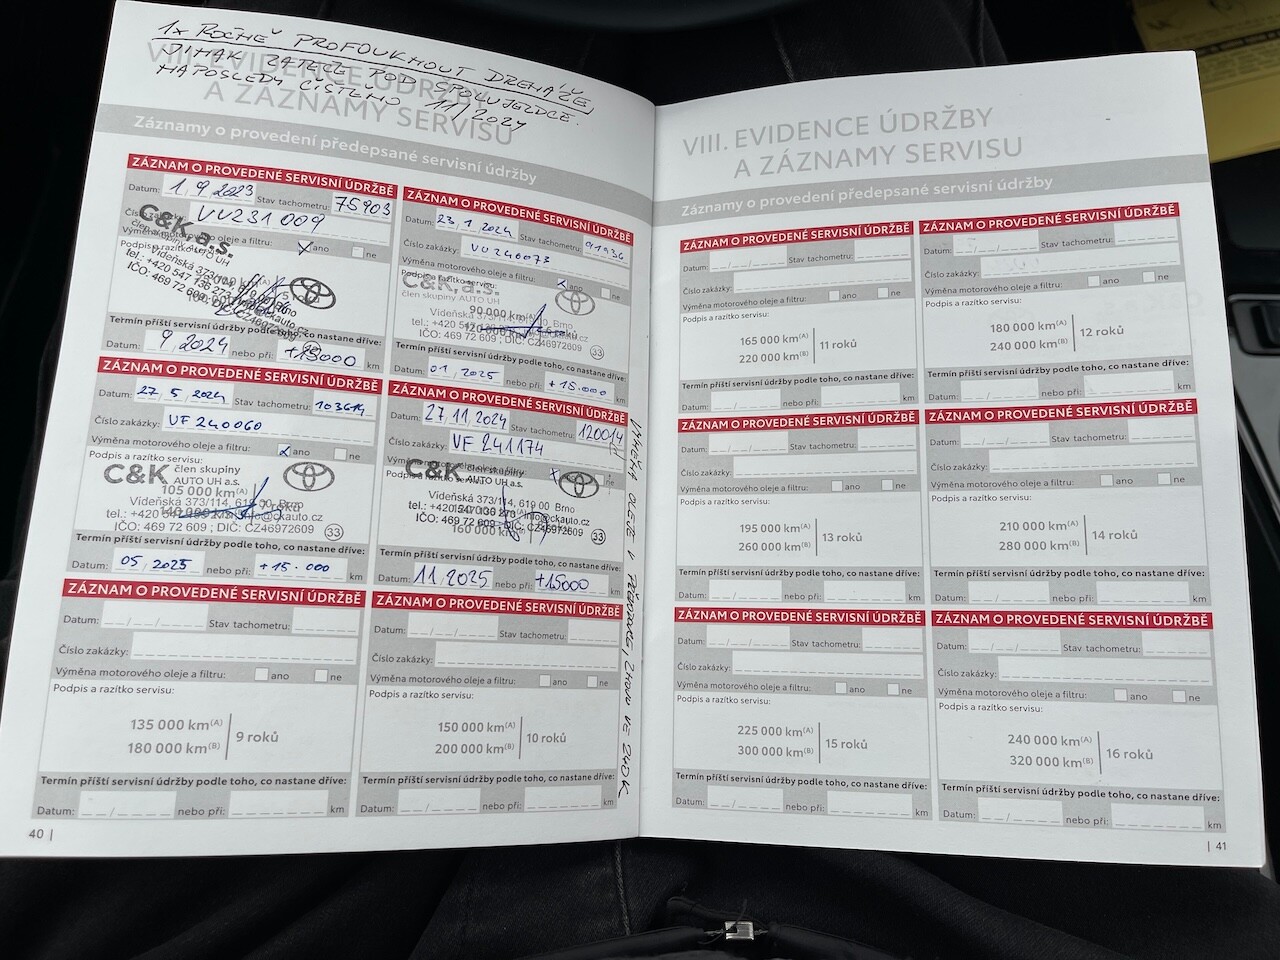 1x ROČNĚ PROFOUKNOUT DRENÁŽE,
JINAK ZATEČE POD SPOLUJEZDCE.
NAPOSLEDY ČIŠTĚNO 11/2024
VIII. EVIDENCE ÚDRŽBY
A ZÁZNAMY SERVISU
Záznamy o provedení předepsané servisní údržby
ZÁZNAM O PROVEDENÉ SERVISNÍ ÚDRŽBĚ
Datum: 1 / 9 / 2023 Stav tachometru: 75903
Číslo zakázky: VV231 009
Výměna motorového oleje a filtru: X ano ne
Podpis a razítko servisu:
C&K, a.s.
člen skupiny AUTO UH
Vídeňská 373/114
IČO: 469 72 609
Termín příští servisní údržby podle toho, co nastane dříve:
Datum: 9 / 2024 nebo při: +15000 km
ZÁZNAM O PROVEDENÉ SERVISNÍ ÚDRŽBĚ
Datum: 23, 1, 2024 Stav tachometru: 91936
Číslo zakázky: VU240073
Výměna motorového oleje a filtru: X ano ne
Podpis a razítko servisu:
C&K, a.s.
člen skupiny AUTO UH
90 000 km(A)
Vídeňská 373/114, 619 00 Brno
120 000 km
IČO: 469 72 609 ; DIČ: CZ46972609 33
Termín příští servisní údržby podle toho, co nastane dříve:
Datum: 01, 2025 nebo při: +15.000 km
ZÁZNAM O PROVEDENÉ SERVISNÍ ÚDRŽBĚ
Datum: 27, 5, 2024 Stav tachometru: 103614
Číslo zakázky: VF 240060
Výměna motorového oleje a filtru: X ano ne
Podpis a razítko servisu:
C&K člen skupiny
AUTO UH a.s.
105 000 km(A)
Vídeňská 373/114, 619 00 Brno
140 000 km
info@ckauto.cz
IČO: 469 72 609 ; DIČ: CZ46972609 33
Termín příští servisní údržby podle toho, co nastane dříve:
Datum: 05, 2025 nebo při: +15.000 km
ZÁZNAM O PROVEDENÉ SERVISNÍ ÚDRŽBĚ
Datum: 27 / 11 / 2024 Stav tachometru: 120014
Číslo zakázky: VF 241174
Výměna motorového oleje a filtru: X ano ne
Podpis a razítko servisu:
C&K člen skupiny
AUTO UH a.s.
Vídeňská 373/114, 619 00 Brno
info@ckauto.cz
IČO: 469 72 609 ; DIČ: CZ46972609 33
160 000 km
Termín příští servisní údržby podle toho, co nastane dříve:
Datum: 11, 2025 nebo při: +15000 km
VÝMĚNA OLEJE V PŘEVODOVCE, ZNOVU VE 240K
ZÁZNAM O PROVEDENÉ SERVISNÍ ÚDRŽBĚ
Datum: / / Stav tachometru:
Číslo zakázky:
Výměna motorového oleje a filtru: ano ne
Podpis a razítko servisu:
135 000 km(A)
180 000 km(B)
9 roků
Termín příští servisní údržby podle toho, co nastane dříve:
Datum: / nebo při: km
ZÁZNAM O PROVEDENÉ SERVISNÍ ÚDRŽBĚ
Datum: / / Stav tachometru:
Číslo zakázky:
Výměna motorového oleje a filtru: ano ne
Podpis a razítko servisu:
150 000 km(A)
200 000 km(B)
10 roků
Termín příští servisní údržby podle toho, co nastane dříve:
Datum: / nebo při: km
40 |
VIII. EVIDENCE ÚDRŽBY
A ZÁZNAMY SERVISU
Záznamy o provedení předepsané servisní údržby
ZÁZNAM O PROVEDENÉ SERVISNÍ ÚDRŽBĚ
Datum: / / Stav tachometru:
Číslo zakázky:
Výměna motorového oleje a filtru: ano ne
Podpis a razítko servisu:
165 000 km(A)
220 000 km(B)
11 roků
Termín příští servisní údržby podle toho, co nastane dříve:
Datum: / nebo při: km
ZÁZNAM O PROVEDENÉ SERVISNÍ ÚDRŽBĚ
Datum: / / Stav tachometru:
Číslo zakázky:
Výměna motorového oleje a filtru: ano ne
Podpis a razítko servisu:
180 000 km(A)
240 000 km(B)
12 roků
Termín příští servisní údržby podle toho, co nastane dříve:
Datum: / nebo při: km
ZÁZNAM O PROVEDENÉ SERVISNÍ ÚDRŽBĚ
Datum: / / Stav tachometru:
Číslo zakázky:
Výměna motorového oleje a filtru: ano ne
Podpis a razítko servisu:
195 000 km(A)
260 000 km(B)
13 roků
Termín příští servisní údržby podle toho, co nastane dříve:
Datum: / nebo při: km
ZÁZNAM O PROVEDENÉ SERVISNÍ ÚDRŽBĚ
Datum: / / Stav tachometru:
Číslo zakázky:
Výměna motorového oleje a filtru: ano ne
Podpis a razítko servisu:
210 000 km(A)
280 000 km(B)
14 roků
Termín příští servisní údržby podle toho, co nastane dříve:
Datum: / nebo při: km
ZÁZNAM O PROVEDENÉ SERVISNÍ ÚDRŽBĚ
Datum: / / Stav tachometru:
Číslo zakázky:
Výměna motorového oleje a filtru: ano ne
Podpis a razítko servisu:
225 000 km(A)
300 000 km(B)
15 roků
Termín příští servisní údržby podle toho, co nastane dříve:
Datum: / nebo při: km
ZÁZNAM O PROVEDENÉ SERVISNÍ ÚDRŽBĚ
Datum: / / Stav tachometru:
Číslo zakázky:
Výměna motorového oleje a filtru: ano ne
Podpis a razítko servisu:
240 000 km(A)
320 000 km(B)
16 roků
Termín příští servisní údržby podle toho, co nastane dříve:
Datum: / nebo při: km
| 41